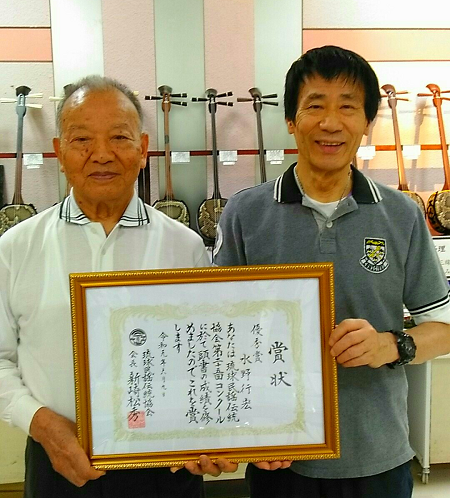 賞状
優秀賞
水野行宏
あなたは琉球民謡伝統
協会第二五コンクール
に於て頭書の成績を修
めましたのでこれを賞
します
令和元年六月九日
琉球民謡伝統協会
会長